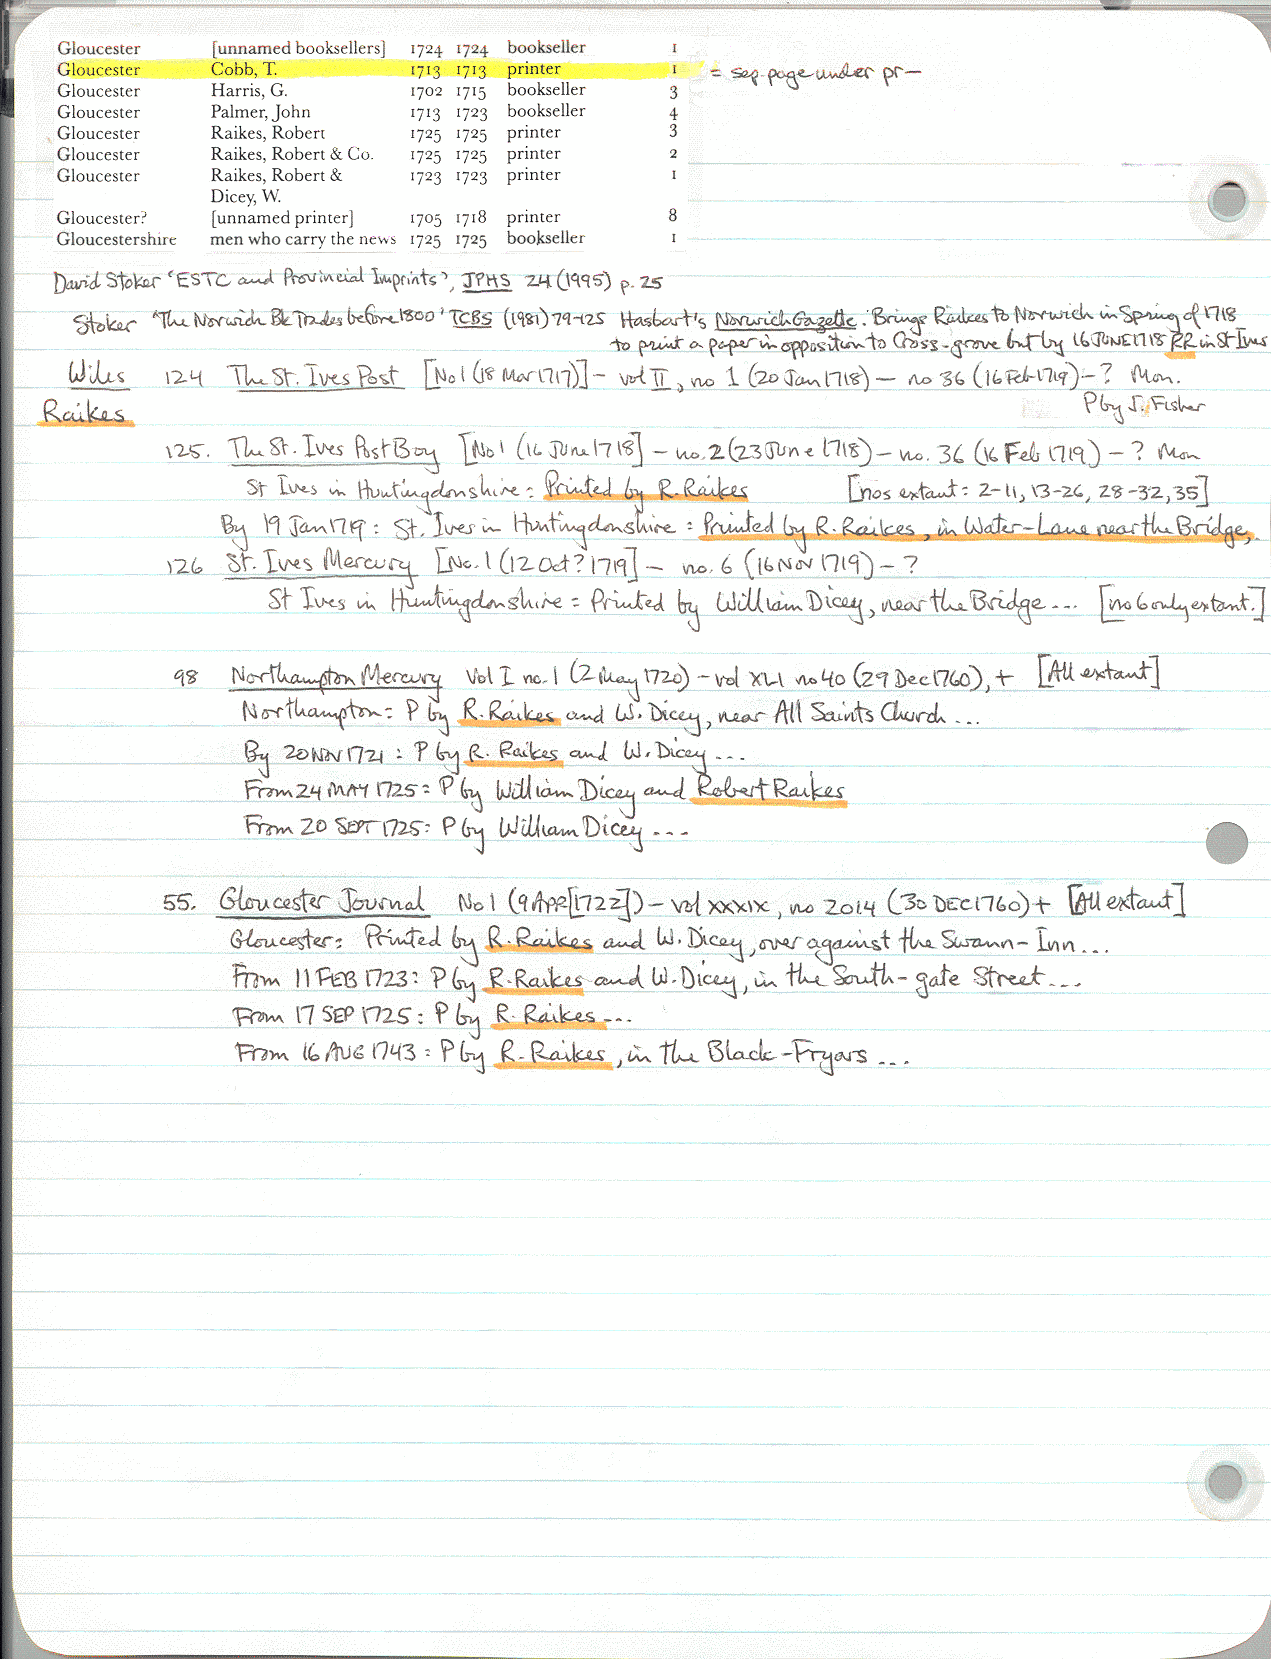 Gloucester [unnamed booksellers] 1724 1724 bookseller 1
Gloucester Cobb, T. 1713 1713 printer 1 = sep. page under pr—
Gloucester Harris, G. 1702 1715 bookseller 3
Gloucester Palmer, John 1713 1723 bookseller 4
Gloucester Raikes, Robert 1725 1725 printer 3
Gloucester Raikes, Robert & Co. 1725 1725 printer 2
Gloucester Raikes, Robert & 1723 1723 printer 1
Dicey, W.
Gloucester? [unnamed printer] 1705 1718 printer 8
Gloucestershire men who carry the news 1725 1725 bookseller 1
David Stoker 'ESTC and Provincial Imprints', JPHS 24 (1995) p. 25
Stoker 'The Norwich Bk Trades before 1800' TCBS (1981) 79-125 Hasbart's Norwich Gazette. Brings Raikes to Norwich in Spring of 1718
to print a paper in opposition to Cross-grove but by 16 JUNE 1718 RR in St Ives
Wiles 124 The St. Ives Post [No 1 (18 Mar 1717)] – vol II, no 1 (20 Jan 1718) – no 36 (16 Feb 1719) – ? Mon.
P by J. Fisher
Raikes
125. The St. Ives Post Boy [No 1 (16 June 1718] – no. 2 (23 June 1718) – no. 36 (16 Feb 1719) – ? Mon
St Ives in Huntingdonshire: Printed by R. Raikes [nos extant: 2-11, 13-26, 28-32, 35]
By 19 Jan 1719: St. Ives in Huntingdonshire: Printed by R. Raikes, in Water-Lane near the Bridge,.
126 St. Ives Mercury [No. 1 (12 Oct? 1719] – no. 6 (16 Nov 1719) – ?
St Ives in Huntingdonshire = Printed by William Dicey, near the Bridge... [no 6 only extant.]
98 Northampton Mercury Vol I no. 1 (2 May 1720) – vol XLI no 40 (29 Dec 1760), + [All extant]
Northampton: P by R. Raikes and W. Dicey, near All Saints Church...
By 20 NOV 1721: P by R. Raikes and W. Dicey...
From 24 MAY 1725: P by William Dicey and Robert Raikes
From 20 SEPT 1725: P by William Dicey...
55. Gloucester Journal No 1 (9 APR [1722]) – vol xxxix, no 2014 (30 DEC 1760) + [All extant]
Gloucester: Printed by R. Raikes and W. Dicey, over against the Swann-Inn...
From 11 FEB 1723: P by R. Raikes and W. Dicey, in the South-gate Street...
From 17 SEP 1725: P by R. Raikes...
From 16 AUG 1743: P by R. Raikes, in the Black-Fryars...